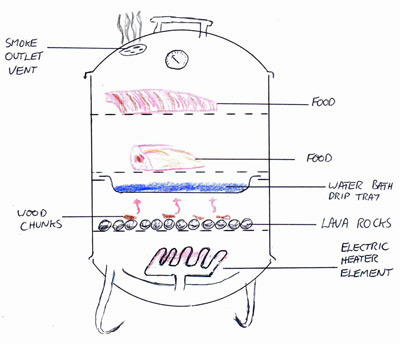 SMOKE
OUTLET
VENT
FOOD
FOOD
WATER BATH
DRIP TRAY
WOOD
CHUNKS
LAVA ROCKS
ELECTRIC
HEATER
ELEMENT